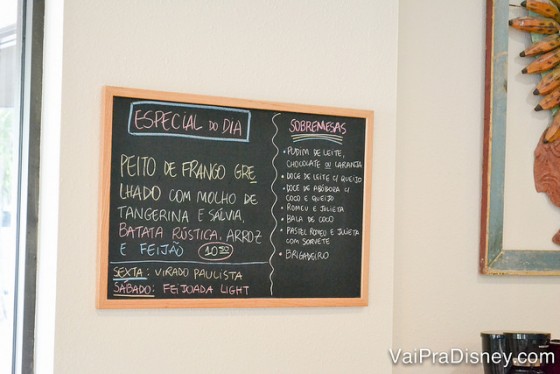 ESPECIAL DO DIA
PEITO DE FRANGO GRE
LHADO COM MOLHO DE
TANGERINA E SÁLVIA,
BATATA RÚSTICA, ARROZ
E FEIJÃO
SEXTA: VIRADO PAULISTA
SÁBADO: FEIJOADA LIGHT
SOBREMESAS
• PUDIM DE LEITE,
CHOCOLATE OU LARANJA
• DOCE DE LEITE C/ QUEIJO
• DOCE DE ABÓBORA C/
COCO E QUEIJO
• ROMEU E JULIETA
• BALA DE COCO
• PASTEL ROMEU E JULIETA
COM SORVETE
• BRIGADEIRO
VaiPraDisney.com!